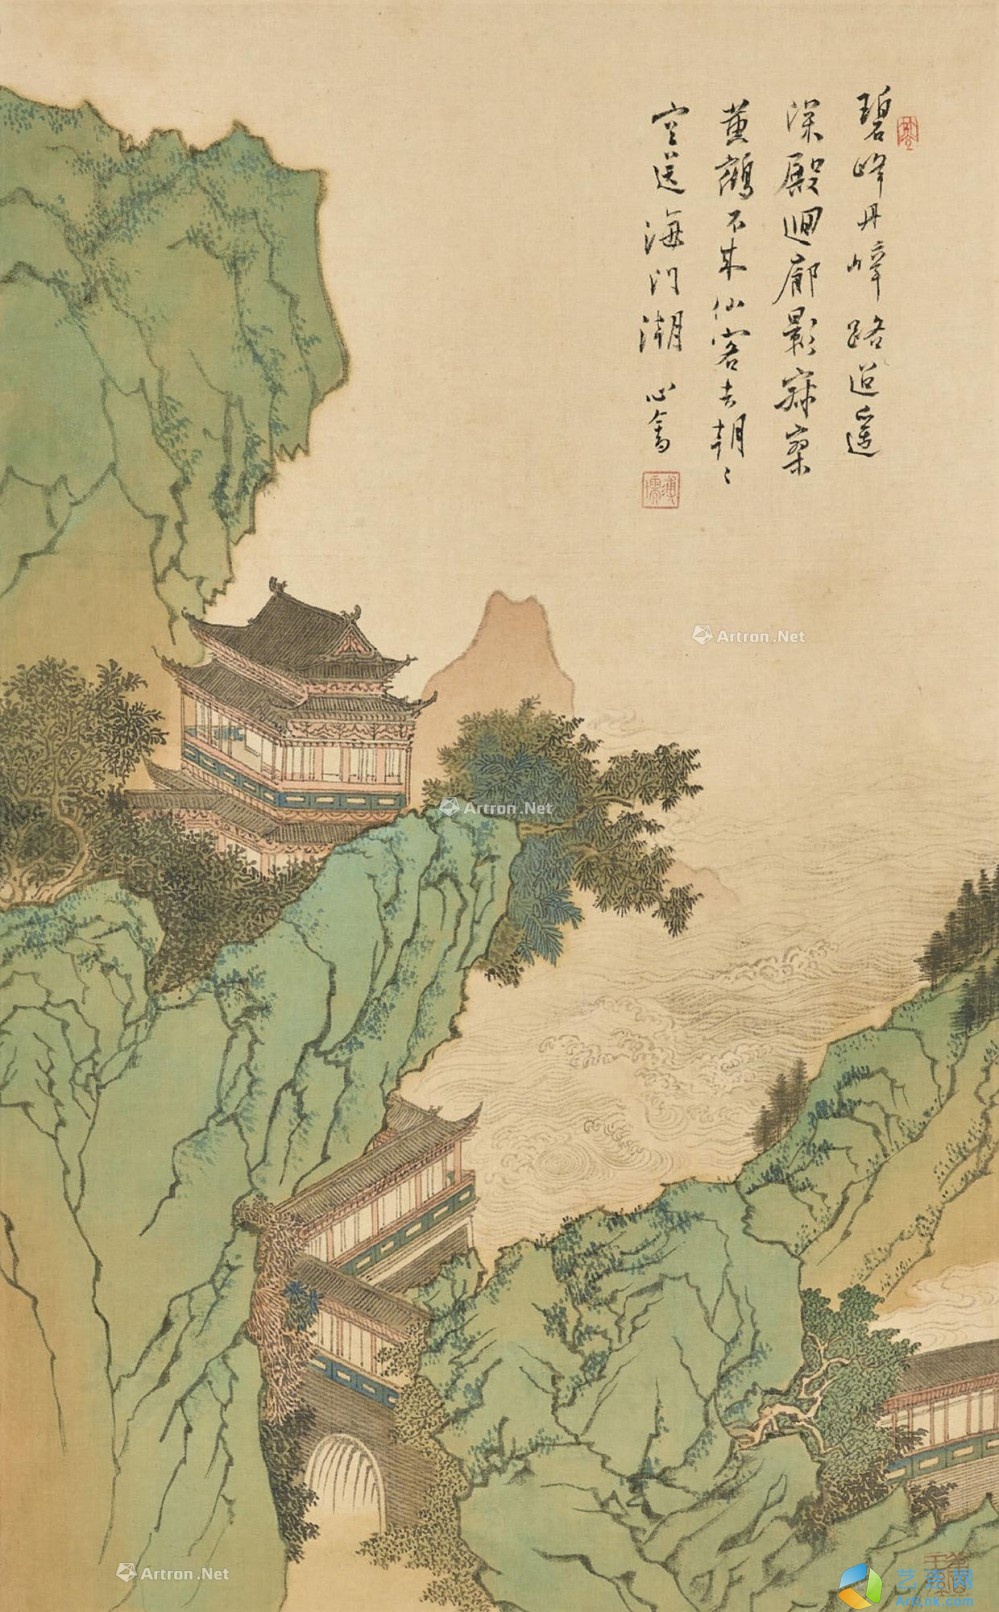 碧峰丹嶂路迢遥
深殿迴廊影寂寥
黄鶴不来仙客去朝〻
空送海门潮 心畬
溥儒
Artron.Net
Artron.Net
Artron.Net
艺客网
Artkok.com